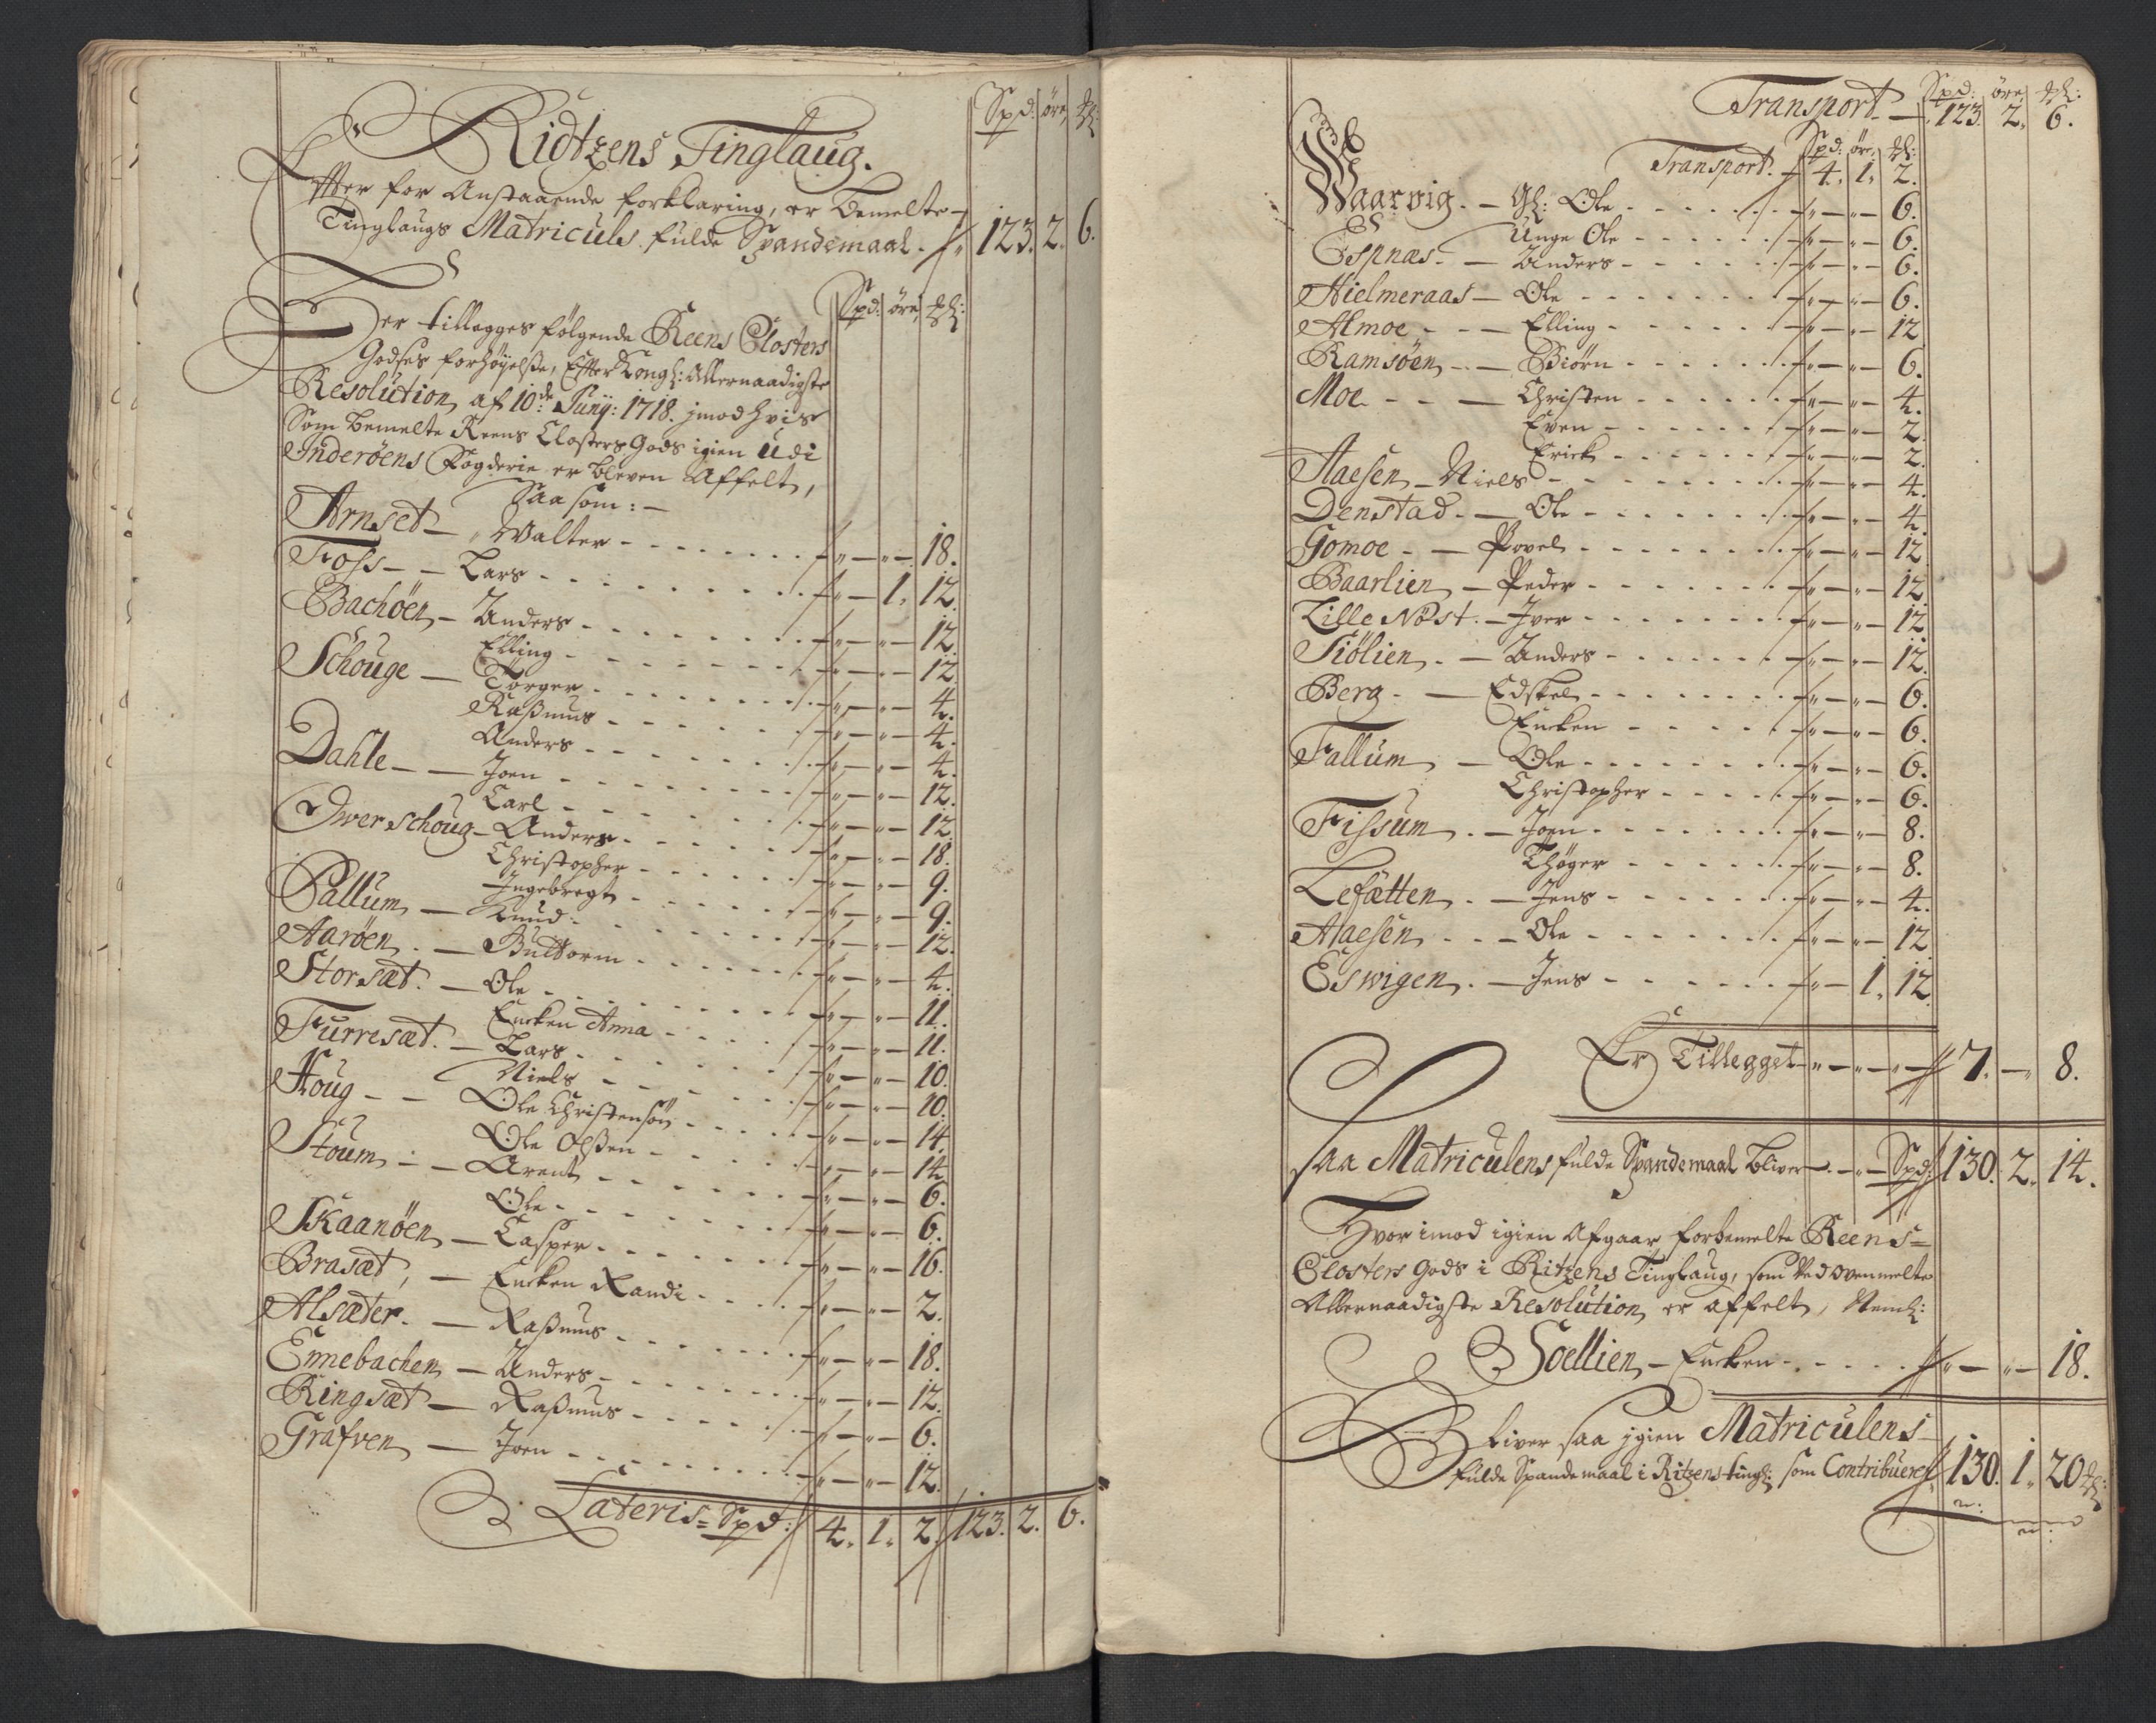 Spd: öre,
Ridtzens Tinglaug.
Efter for Anstaaende forklaring, er bemelte
Tinglaugs Matriculs fulde Spandemaal - 123. 2. 6.
Spd: öre,
Der tillegges følgende Reens Closters
Godses forhøyelse, Efter Kongl: Allernaadigste
Resolution af 10de Junij: 1718. jmod hvis
Som bemelte Reens Closters Gods igien udi
Inderöens Fogderie er bleven Affelt,
Saasom: -
Arnset - Walter - 18.
Foss - Lars - 1. 12.
Bachöen - Anders - 12.
Elling - 12.
Schouge - Torger - 4.
Rasmus - 4.
Anders - 4.
Dahle - Joen - 12.
Carl - 12.
Owerschoug - Anders - 18.
Christopher - 9.
Ingebregt - 9.
Pallum - Knud - 12.
Aaröen - Guttorm - 4.
Storsæt - Ole - 11.
Encken Anna - 11.
Furresæt - Lars - 10.
Niels - 10.
Houg - Ole Christensøn - 14.
Ole Olsen - 14.
Stoum - Arent - 6.
Ole - 6.
Skaanöen - Casper - 16.
Brasæt, - Encken Randi - 2.
Alsæter - Rasmus - 18.
Ennebachen - Anders - 12.
Ringsæt - Rasmus - 6.
Grafven - Joen - 12.
Lateris = Spd: 4. 1. 2. 123. 2. 6.
Spd: öre,
Transport - 123. 2. 6.
Spd: öre,
Transport - 4. 1. 2.
Waarvig - Gl: Ole - 6.
Unge Ole - 6.
Espnæs - Anders - 6.
Hielmeraas - Ole - 6.
Almoe - Elling - 12
Ramsöen - Biörn - 6.
Moe - Christen - 4.
Even - 2.
Erick - 2.
Haesen - Niels - 4.
Denstad - Ole - 4.
Gomoe - Povel - 12
Baarlien - Peder - 12
Lille Nöst - Iver - 12
Fiölien - Anders - 12
Berg - Edskel - 6.
Encken - 6.
Fallum - Ole - 6.
Christopher - 6.
Fissum - Joen - 8.
Thöger - 8.
Lefætten - Jens - 4.
Haesen - Ole - 12
Eswigen - Jens - 1. 12
Er Tillegget - 7. - 8.
Saa Matriculens fulde Spandemaal bliver - Spd: 130. 2. 14.
Hvor imod igien Afgaar forbemelte Reens=
Closters Gods i Ritzens Tinglaug, som ved ovenmelte
Allernaadigste Resolution er affelt, Neml:
Soellien - Encken - 18.
Bliver saa igien Matriculens
fulde Spandemaal i Ritzens tingl: som Contribuerer 130. 1. 20